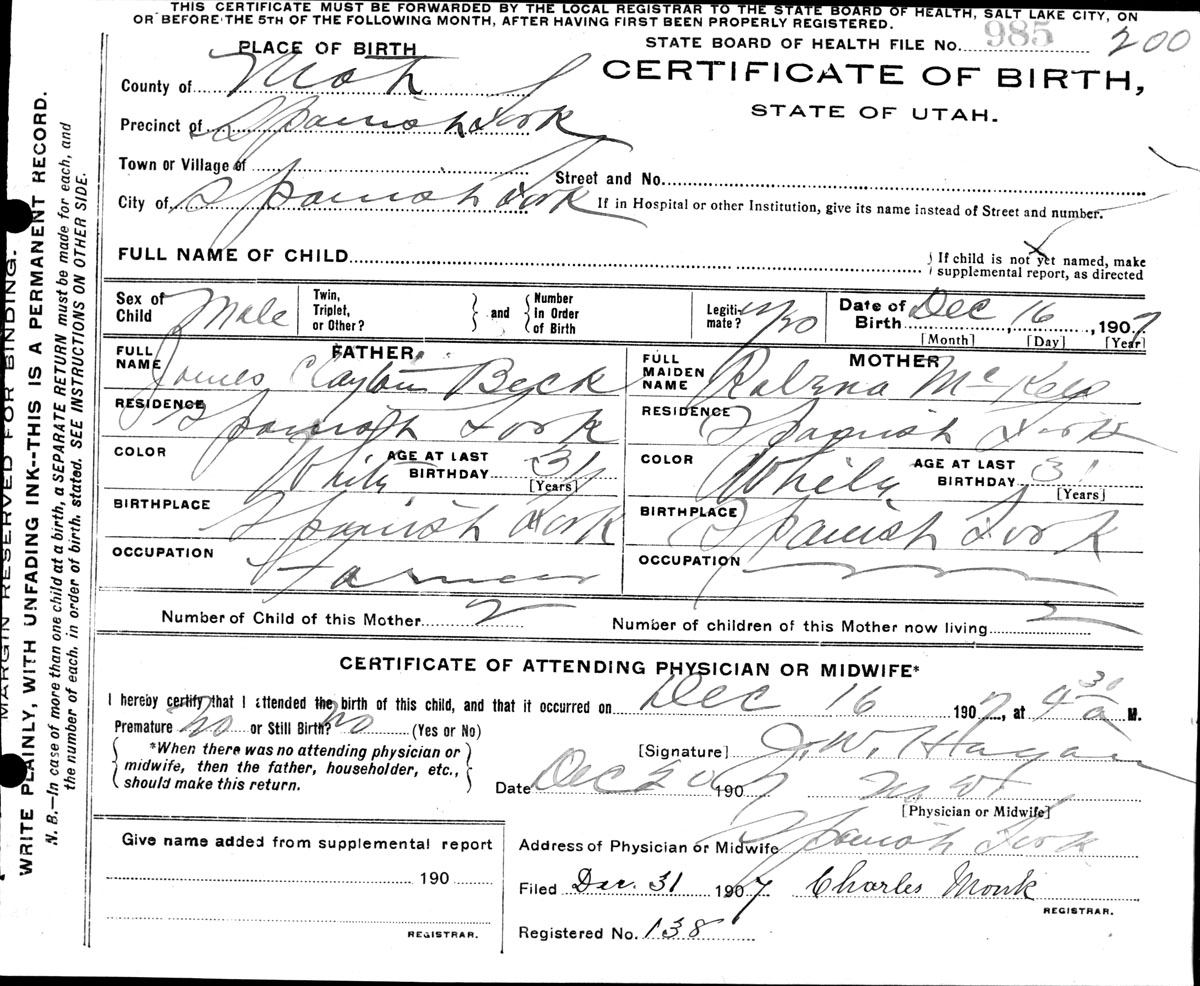 THIS CERTIFICATE MUST BE FORWARDED BY THE LOCAL REGISTRAR TO THE STATE BOARD OF HEALTH, SALT LAKE CITY, ON
OR BEFORE THE 5TH OF THE FOLLOWING MONTH, AFTER HAVING FIRST BEEN PROPERLY REGISTERED.
STATE BOARD OF HEALTH FILE No. 985 200
PLACE OF BIRTH
CERTIFICATE OF BIRTH,
STATE OF UTAH.
County of Utah
Precinct of Spanish Fork
Town or Village of
Street and No.
City of Spanish Fork
If in Hospital or other Institution, give its name instead of Street and number.
FULL NAME OF CHILD
If child is not yet named, make
supplemental report, as directed
Sex of Child Male
Twin, Triplet, or Other?
and
Number In Order of Birth
Legitimate?
Date of Birth Dec 16, 1907
[Month] [Day] [Year]
FATHER
FULL NAME James Clayton Beck
RESIDENCE Spanish Fork
COLOR White
AGE AT LAST BIRTHDAY 31
[Years]
BIRTHPLACE Spanish Fork
OCCUPATION Farmer
MOTHER
FULL MAIDEN NAME Mc
RESIDENCE Spanish Fork
COLOR White
AGE AT LAST BIRTHDAY 31
[Years]
BIRTHPLACE Spanish Fork
OCCUPATION
Number of Child of this Mother 2
Number of children of this Mother now living 2
CERTIFICATE OF ATTENDING PHYSICIAN OR MIDWIFE*
I hereby certify that I attended the birth of this child, and that it occurred on Dec 16 1907, at 4 30 a M.
Premature No or Still Birth? No (Yes or No)
*When there was no attending physician or
midwife, then the father, householder, etc.,
should make this return.
[Signature] J. W. Hagan
Date Dec 20 1907 M D.
[Physician or Midwife]
Address of Physician or Midwife Spanish Fork
Give name added from supplemental report
190
REGISTRAR.
Filed Dec. 31 1907 Charles Monk
REGISTRAR.
Registered No. 138
MARGIN RESERVED FOR BINDING.
WRITE PLAINLY, WITH UNFADING INK--THIS IS A PERMANENT RECORD.
N. B.—In case of more than one child at a birth, a SEPARATE RETURN must be made for each, and
the number of each, in order of birth, stated. SEE INSTRUCTIONS ON OTHER SIDE.